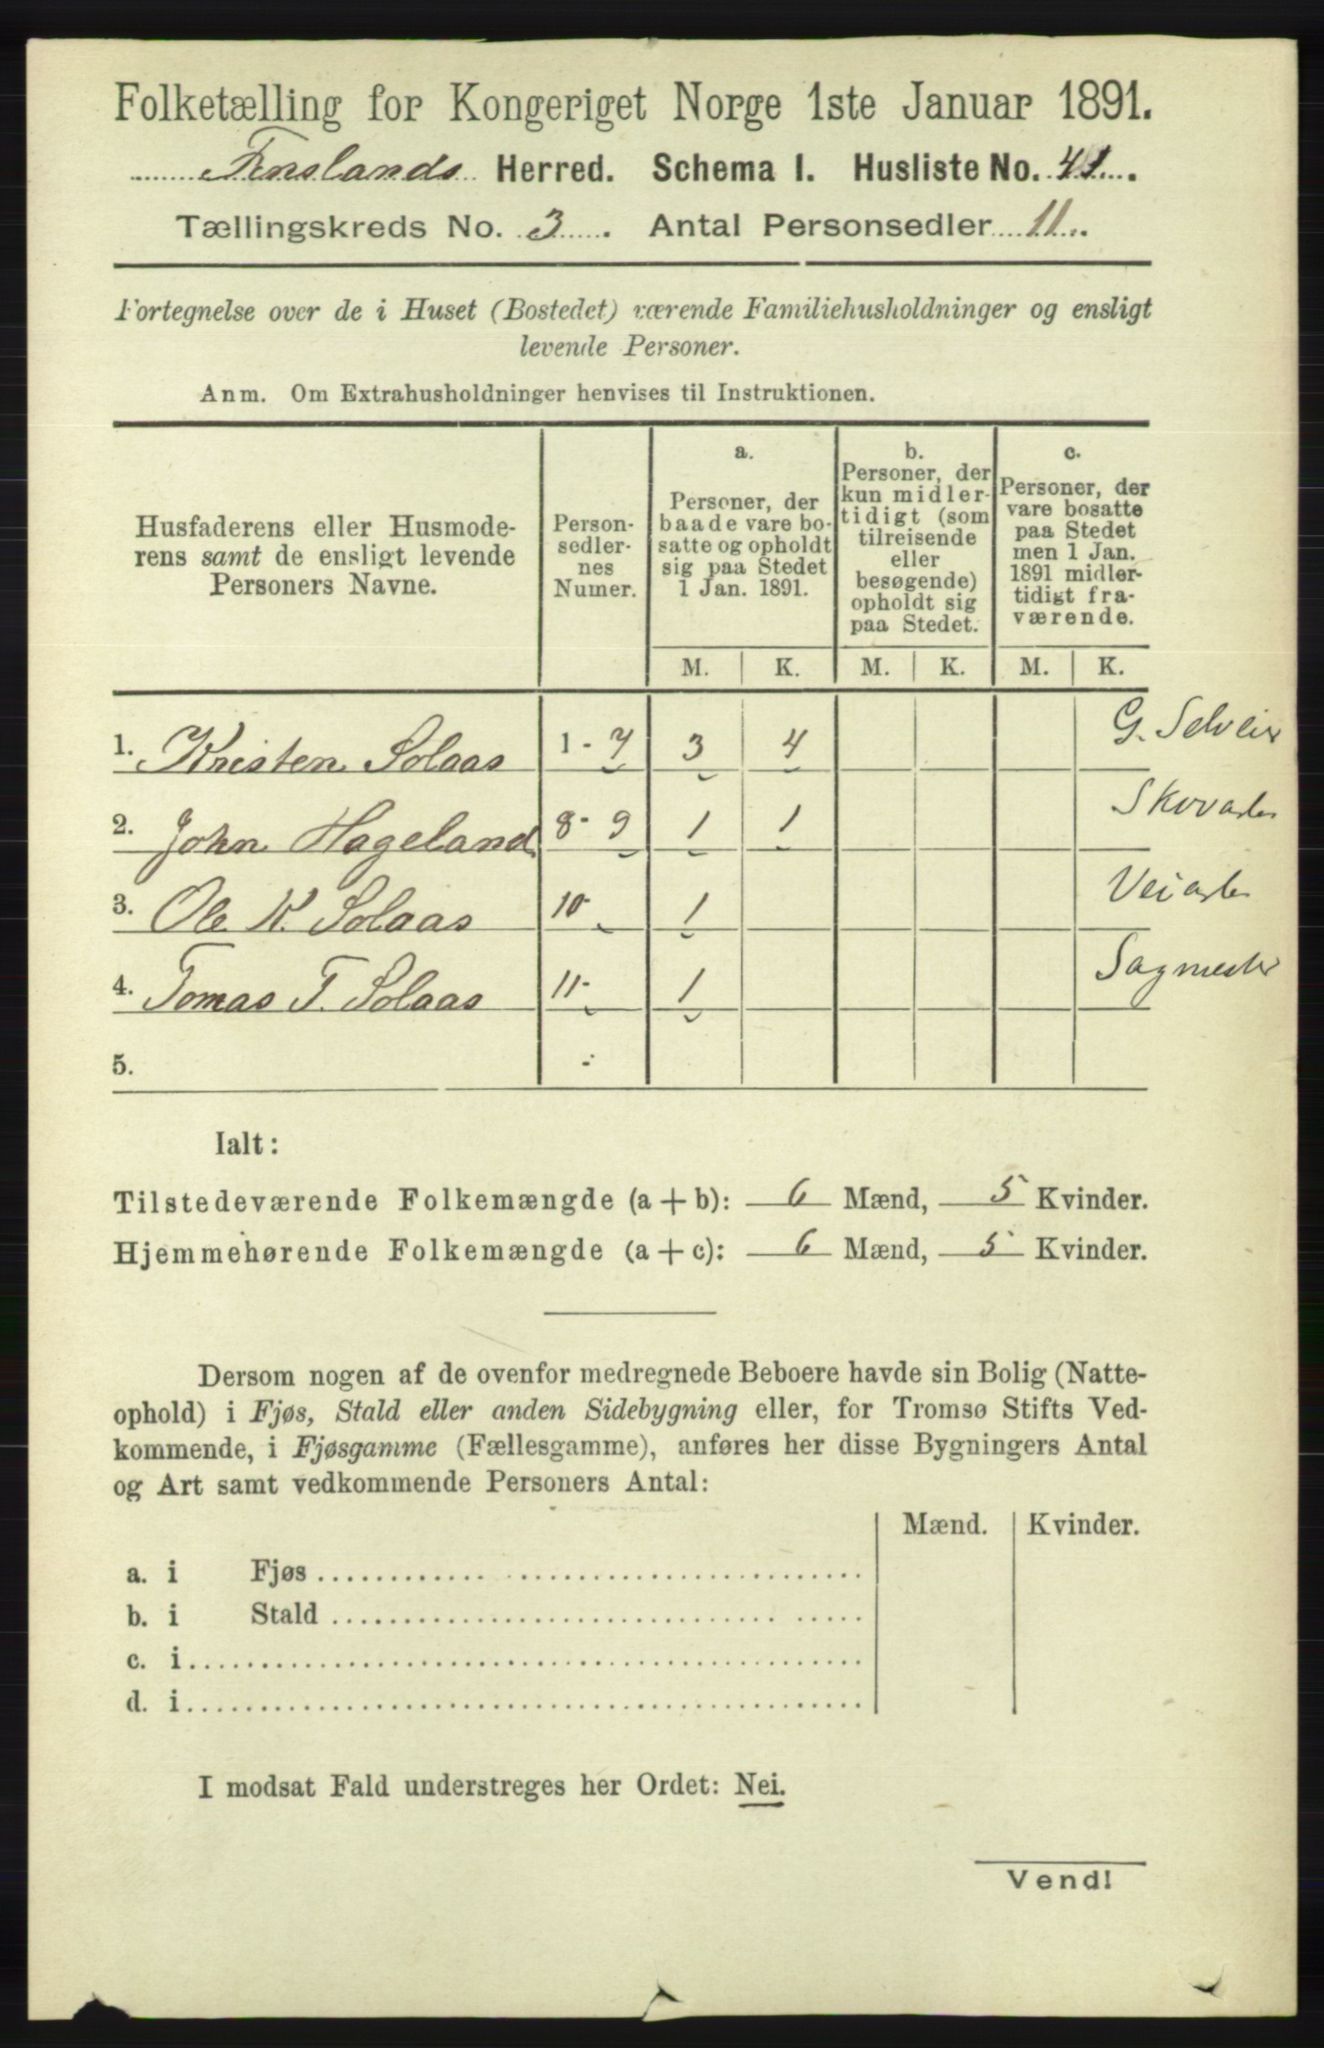 Folketælling for Kongeriget Norge 1ste Januar 1891.
Finslands Herred. Schema I. Husliste No. 41.
Tællingskreds No. 3. Antal Personsedler 11.
Fortegnelse over de i Huset (Bostedet) værende Familiehusholdninger og ensligt
levende Personer.
Anm. Om Extrahusholdninger henvises til Instruktionen.
Husfaderens eller Husmode-
rens samt de ensligt levende
Personers Navne.
Person-
sedler-
nes
Numer.
a.
Personer, der
baade vare bo-
satte og opholdt
sig paa Stedet
1 Jan. 1891.
b.
Personer, der
kun midler-
tidigt (som
tilreisende
eller
besøgende)
opholdt sig
paa Stedet.
c.
Personer, der
vare bosatte
paa Stedet
men 1 Jan.
1891 midler-
tidigt fra-
værende.
M. K. M. K. M. K.
1. Kristen Solaas 1 - 7 3 4 G. Selveier
2. John Hageland 8 - 9 1 1 Skovarb
3. Ole K. Solaas 10 - 1 Veiarb
4. Tomas T. Solaas 11 - 1 Sagmester
5. -
Ialt:
Tilstedeværende Folkemængde (a + b): 6 Mænd, 5 Kvinder.
Hjemmehørende Folkemængde (a + c): 6 Mænd, 5 Kvinder.
Dersom nogen af de ovenfor medregnede Beboere havde sin Bolig (Natte-
ophold) i Fjøs, Stald eller anden Sidebygning eller, for Tromsø Stifts Ved-
kommende, i Fjøsgamme (Fællesgamme), anføres her disse Bygningers Antal
og Art samt vedkommende Personers Antal:
Mænd. Kvinder.
a. i Fjøs
b. i Stald
c. i
d. i
I modsat Fald understreges her Ordet: Nei.
Vend!